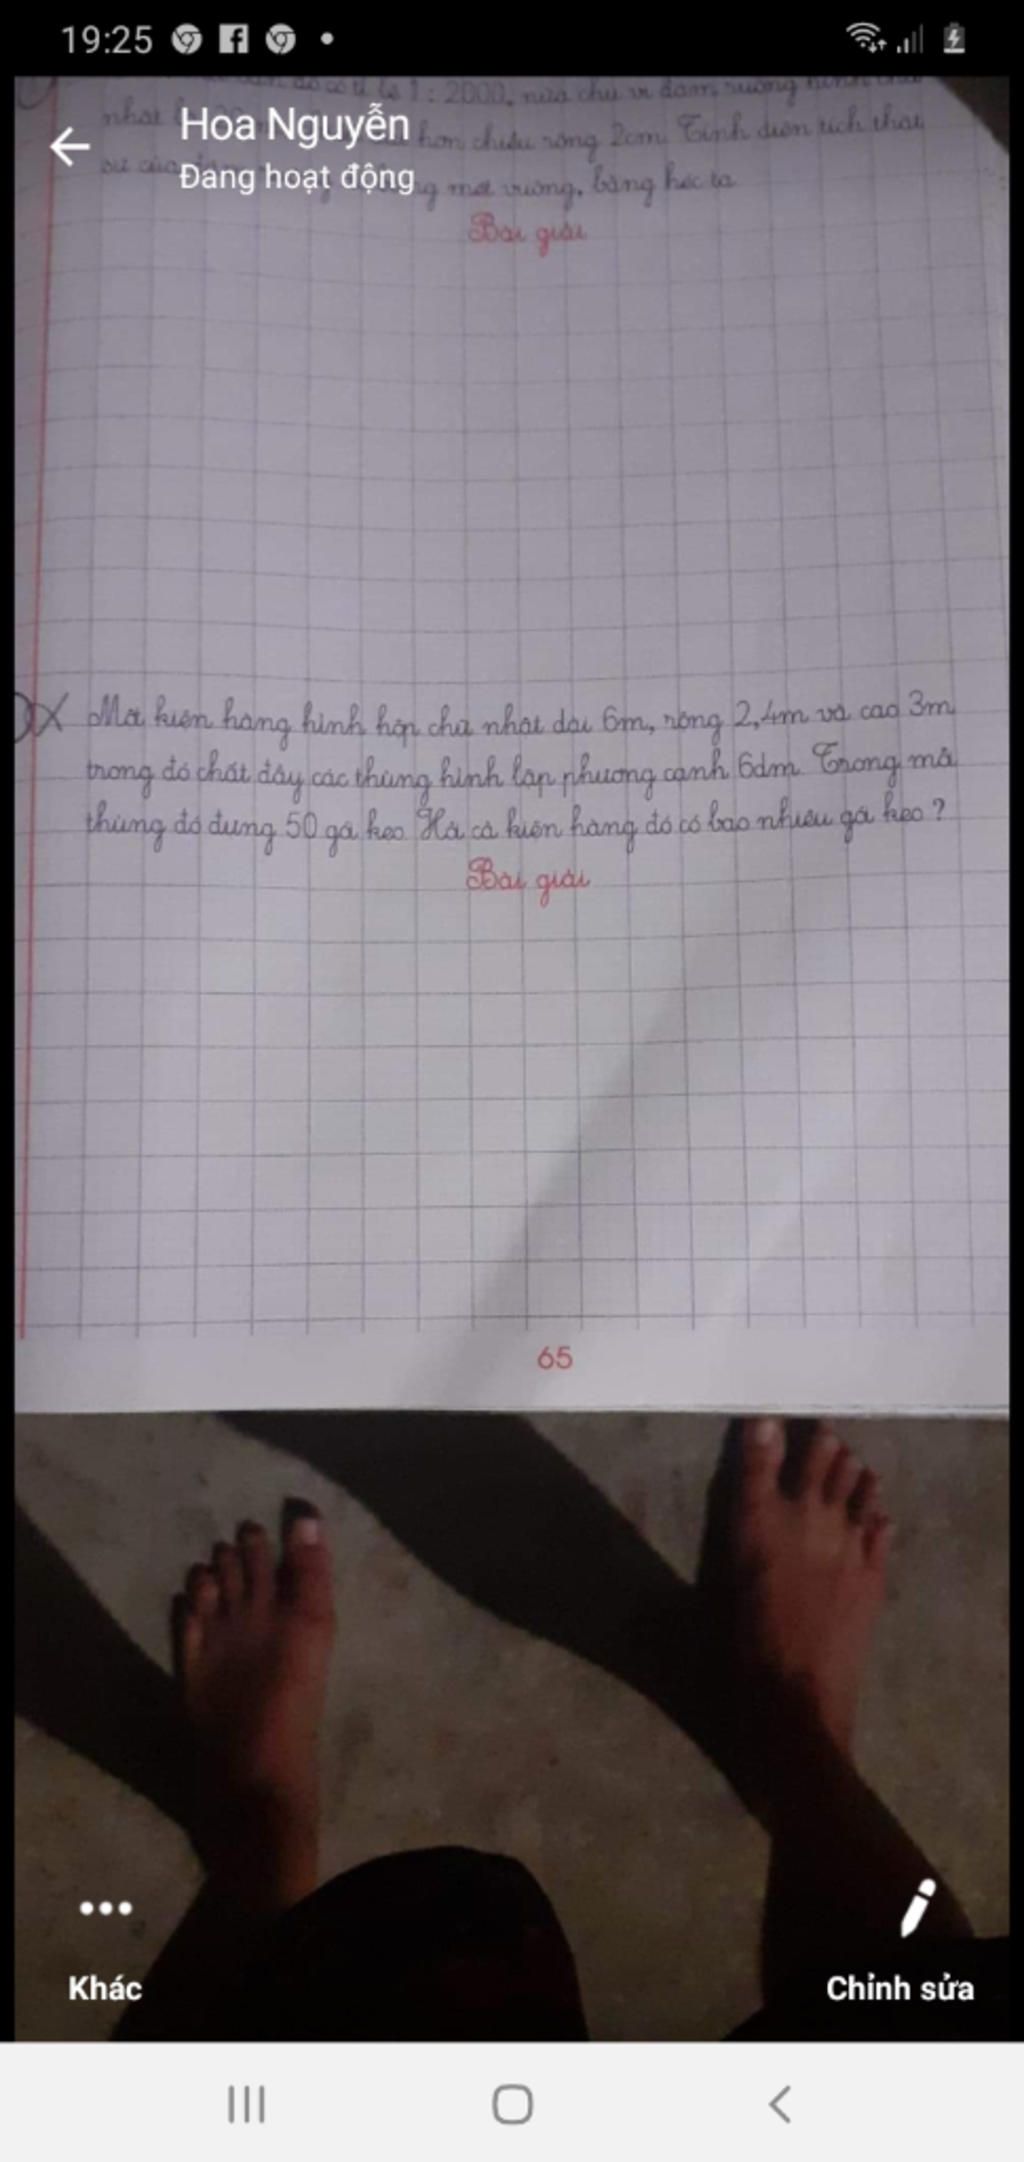 19:25
Hoa Nguyễn
Đang hoạt động
1 : 2000, nửa chu vi đám ruộng hình chữ
nhật hơn chiều rộng 2cm. Tính diện tích thật
mét vuông, bằng héc ta
Bài giải
Một kiện hàng hình hộp chữ nhật dài 6m, rộng 2,4m và cao 3m
trong đó chất đầy các thùng hình lập phương cạnh 6dm. Trong mỗi
thùng đó đựng 50 gói kẹo. Hỏi cả kiện hàng đó có bao nhiêu gói kẹo ?
Bài giải
65
Khác
Chỉnh sửa